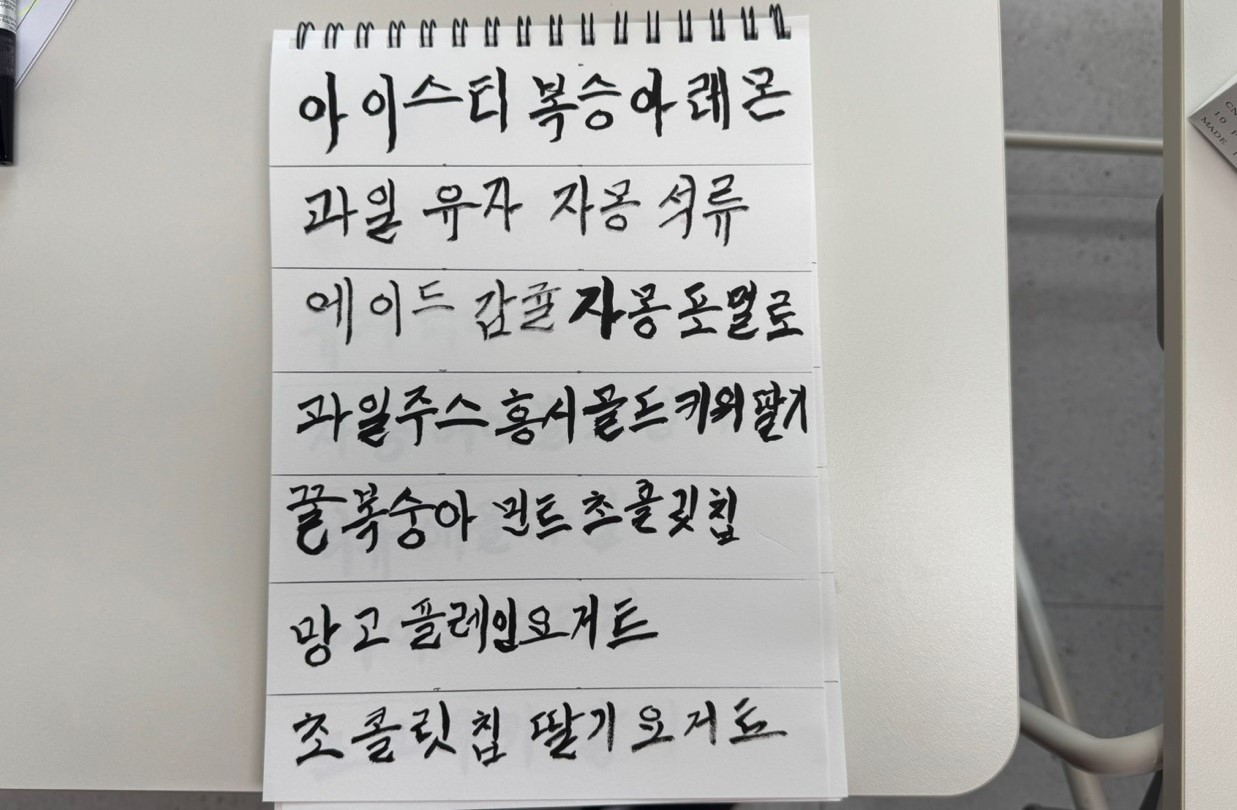 아이스티 복숭아 레몬
과일 유자 자몽 석류
에이드 감귤 자몽 포멜로
과일주스 홍시 골드키위 딸기
꿀복숭아 민트초콜릿칩
망고 플레인요거트
초콜릿칩 딸기 요거트
MADE